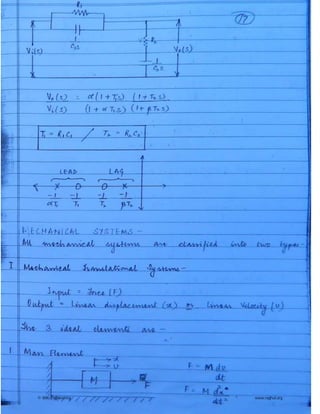 R₁
17
1/C₁s
R₂
Vᵢ(s)
V₀(s)
1/C₂s
V₀(s) : α(1+T₁s) (1+T₂s)
Vᵢ(s) (1+αT₁s) (1+βT₂s)
T₁ = R₁C₁ / T₂ = R₂C₂
LEAD LAG
-1/αT₁ -1/T₁ -1/T₂ -1/βT₂
MECHANICAL SYSTEMS -
All mechanical systems are classified into two types -
I Mechanical Translational Systems -
Input = Force (F)
Output = Linear displacement (x) or Linear Velocity (v)
The 3 ideal elements are -
1. Mass Element
x
v
M
F
F = M dv/dt
F = M d²x/dt²